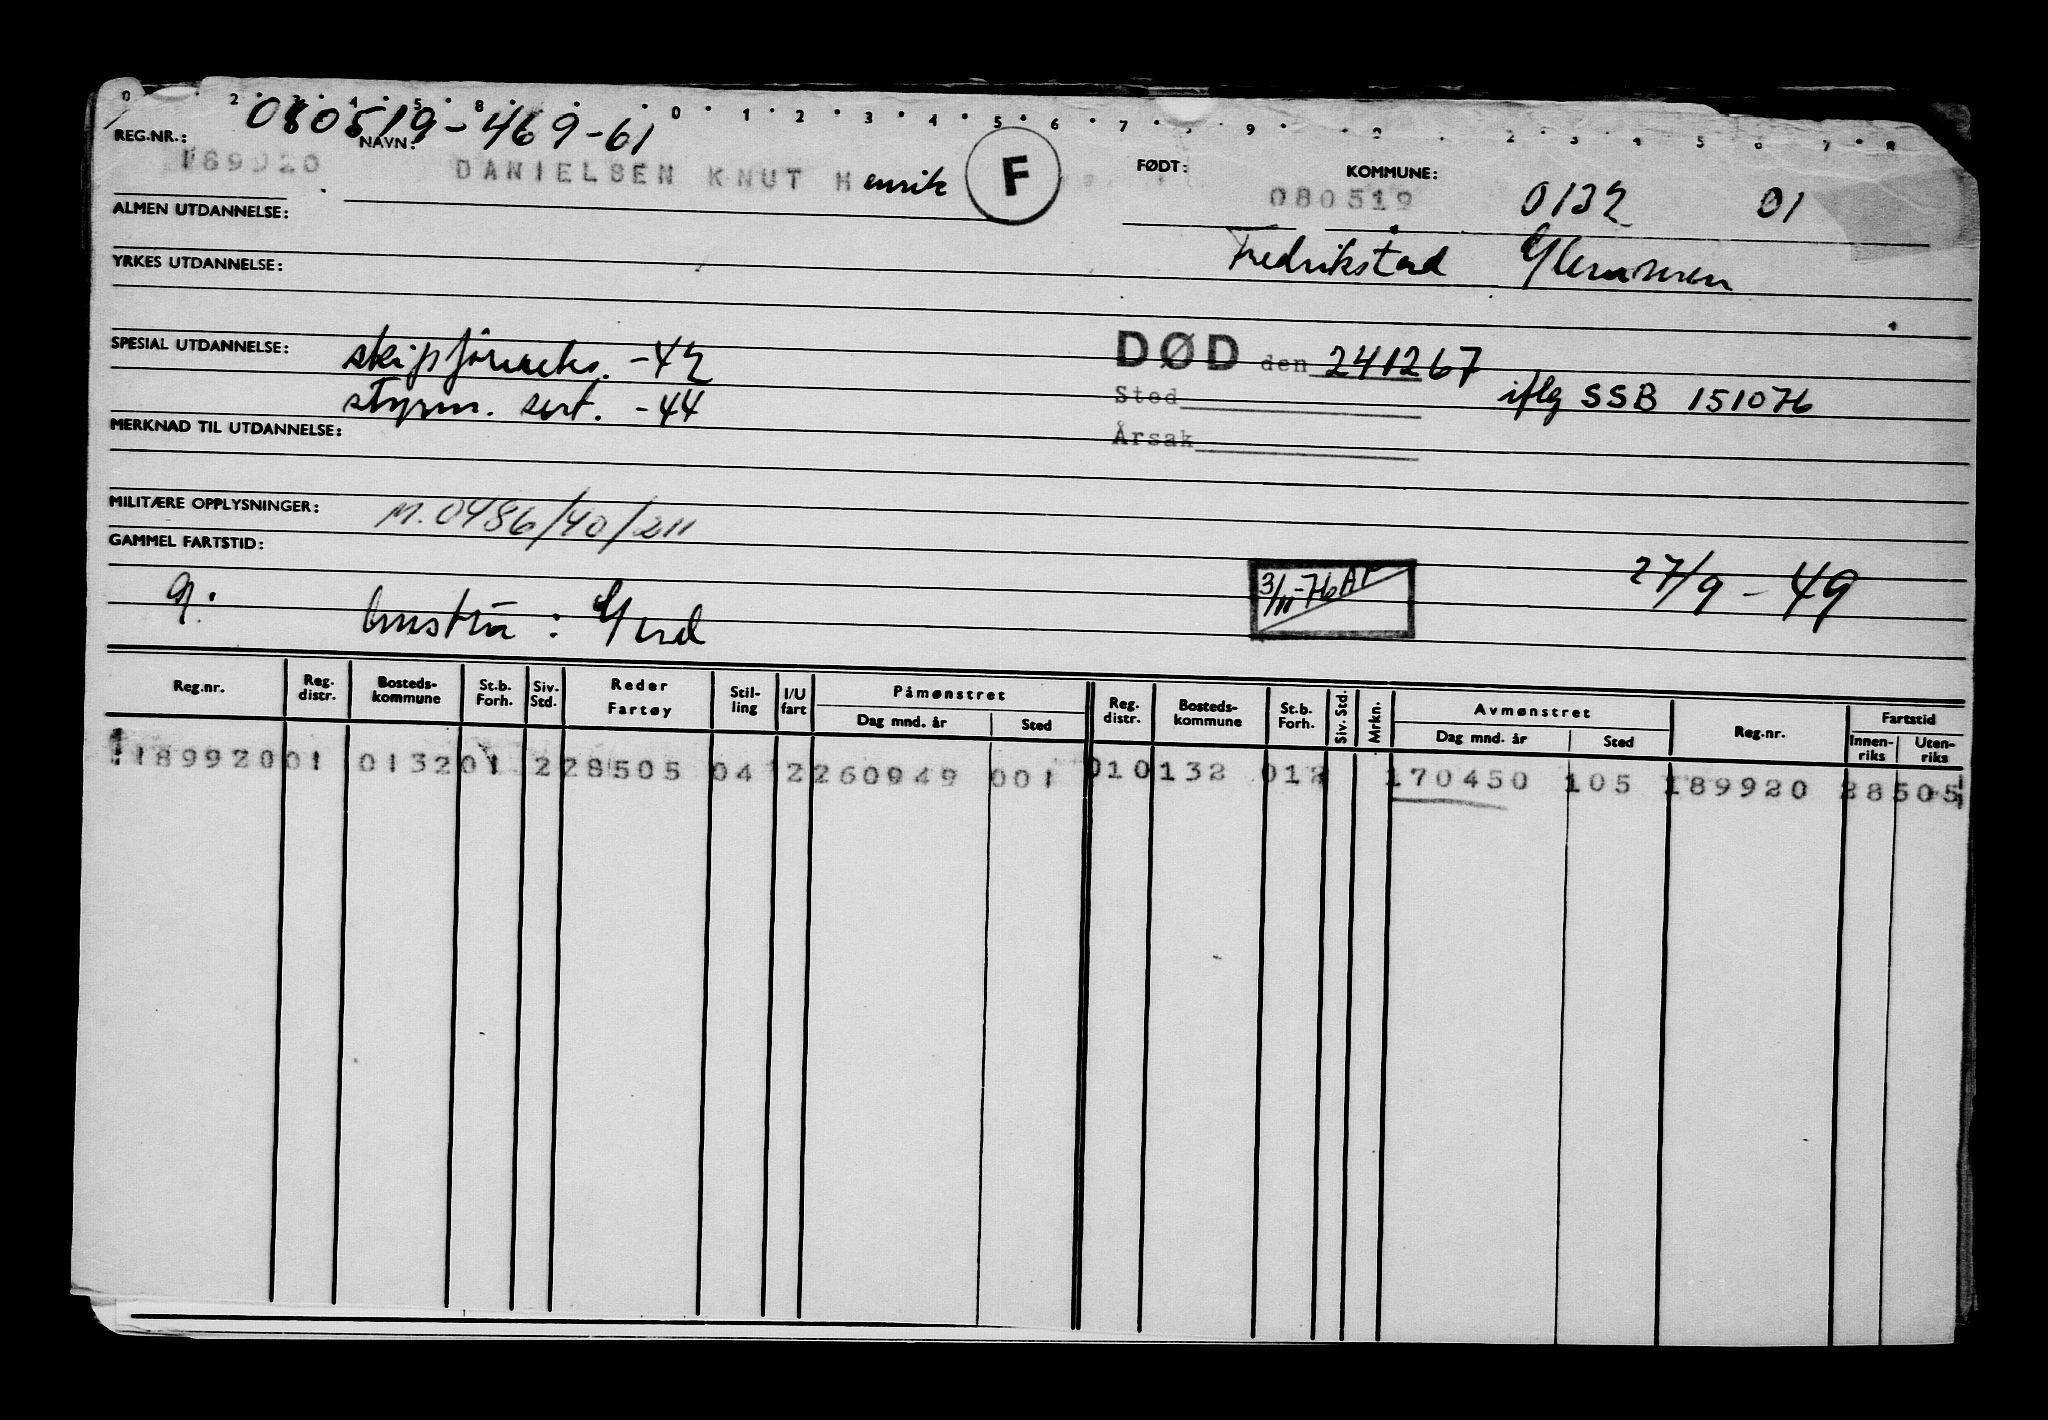 0 2 3 4 5 8 0 1 2 3 4 5 6 7 8 9 2 3 4 5 6 7 8
080519-469-61
REG.NR.: NAVN: FØDT: KOMMUNE:
189920 DANIELSEN KNUT Henrik F 080519 0132 01
ALMEN UTDANNELSE:
Fredrikstad Glemmen
YRKES UTDANNELSE:
SPESIAL UTDANNELSE: skipsføreeks. -42
DØD den 241267
styrm. sert. -44
Sted iflg SSB 151076
MERKNAD TIL UTDANNELSE:
Årsak
MILITÆRE OPPLYSNINGER: M. 0486/40/211
GAMMEL FARTSTID:
3/11-76 27/9 - 49
g. hustru: Gerd
Reg.nr. Reg. distr. Bosteds-kommune St.b. Forh. Siv. Std. Reder Fartøy Stil-ling I/U fart Påmønstret Dag mnd. år Sted Reg. distr. Bosteds-kommune St.b. Forh. Siv. Std. Mrkn. Avmønstret Dag mnd. år Sted Reg.nr. Fartstid Innen-riks Uten-riks
189920 01 0132 01 2 28505 04 2 260949 001 01 0132 012 170450 105 189920 28505